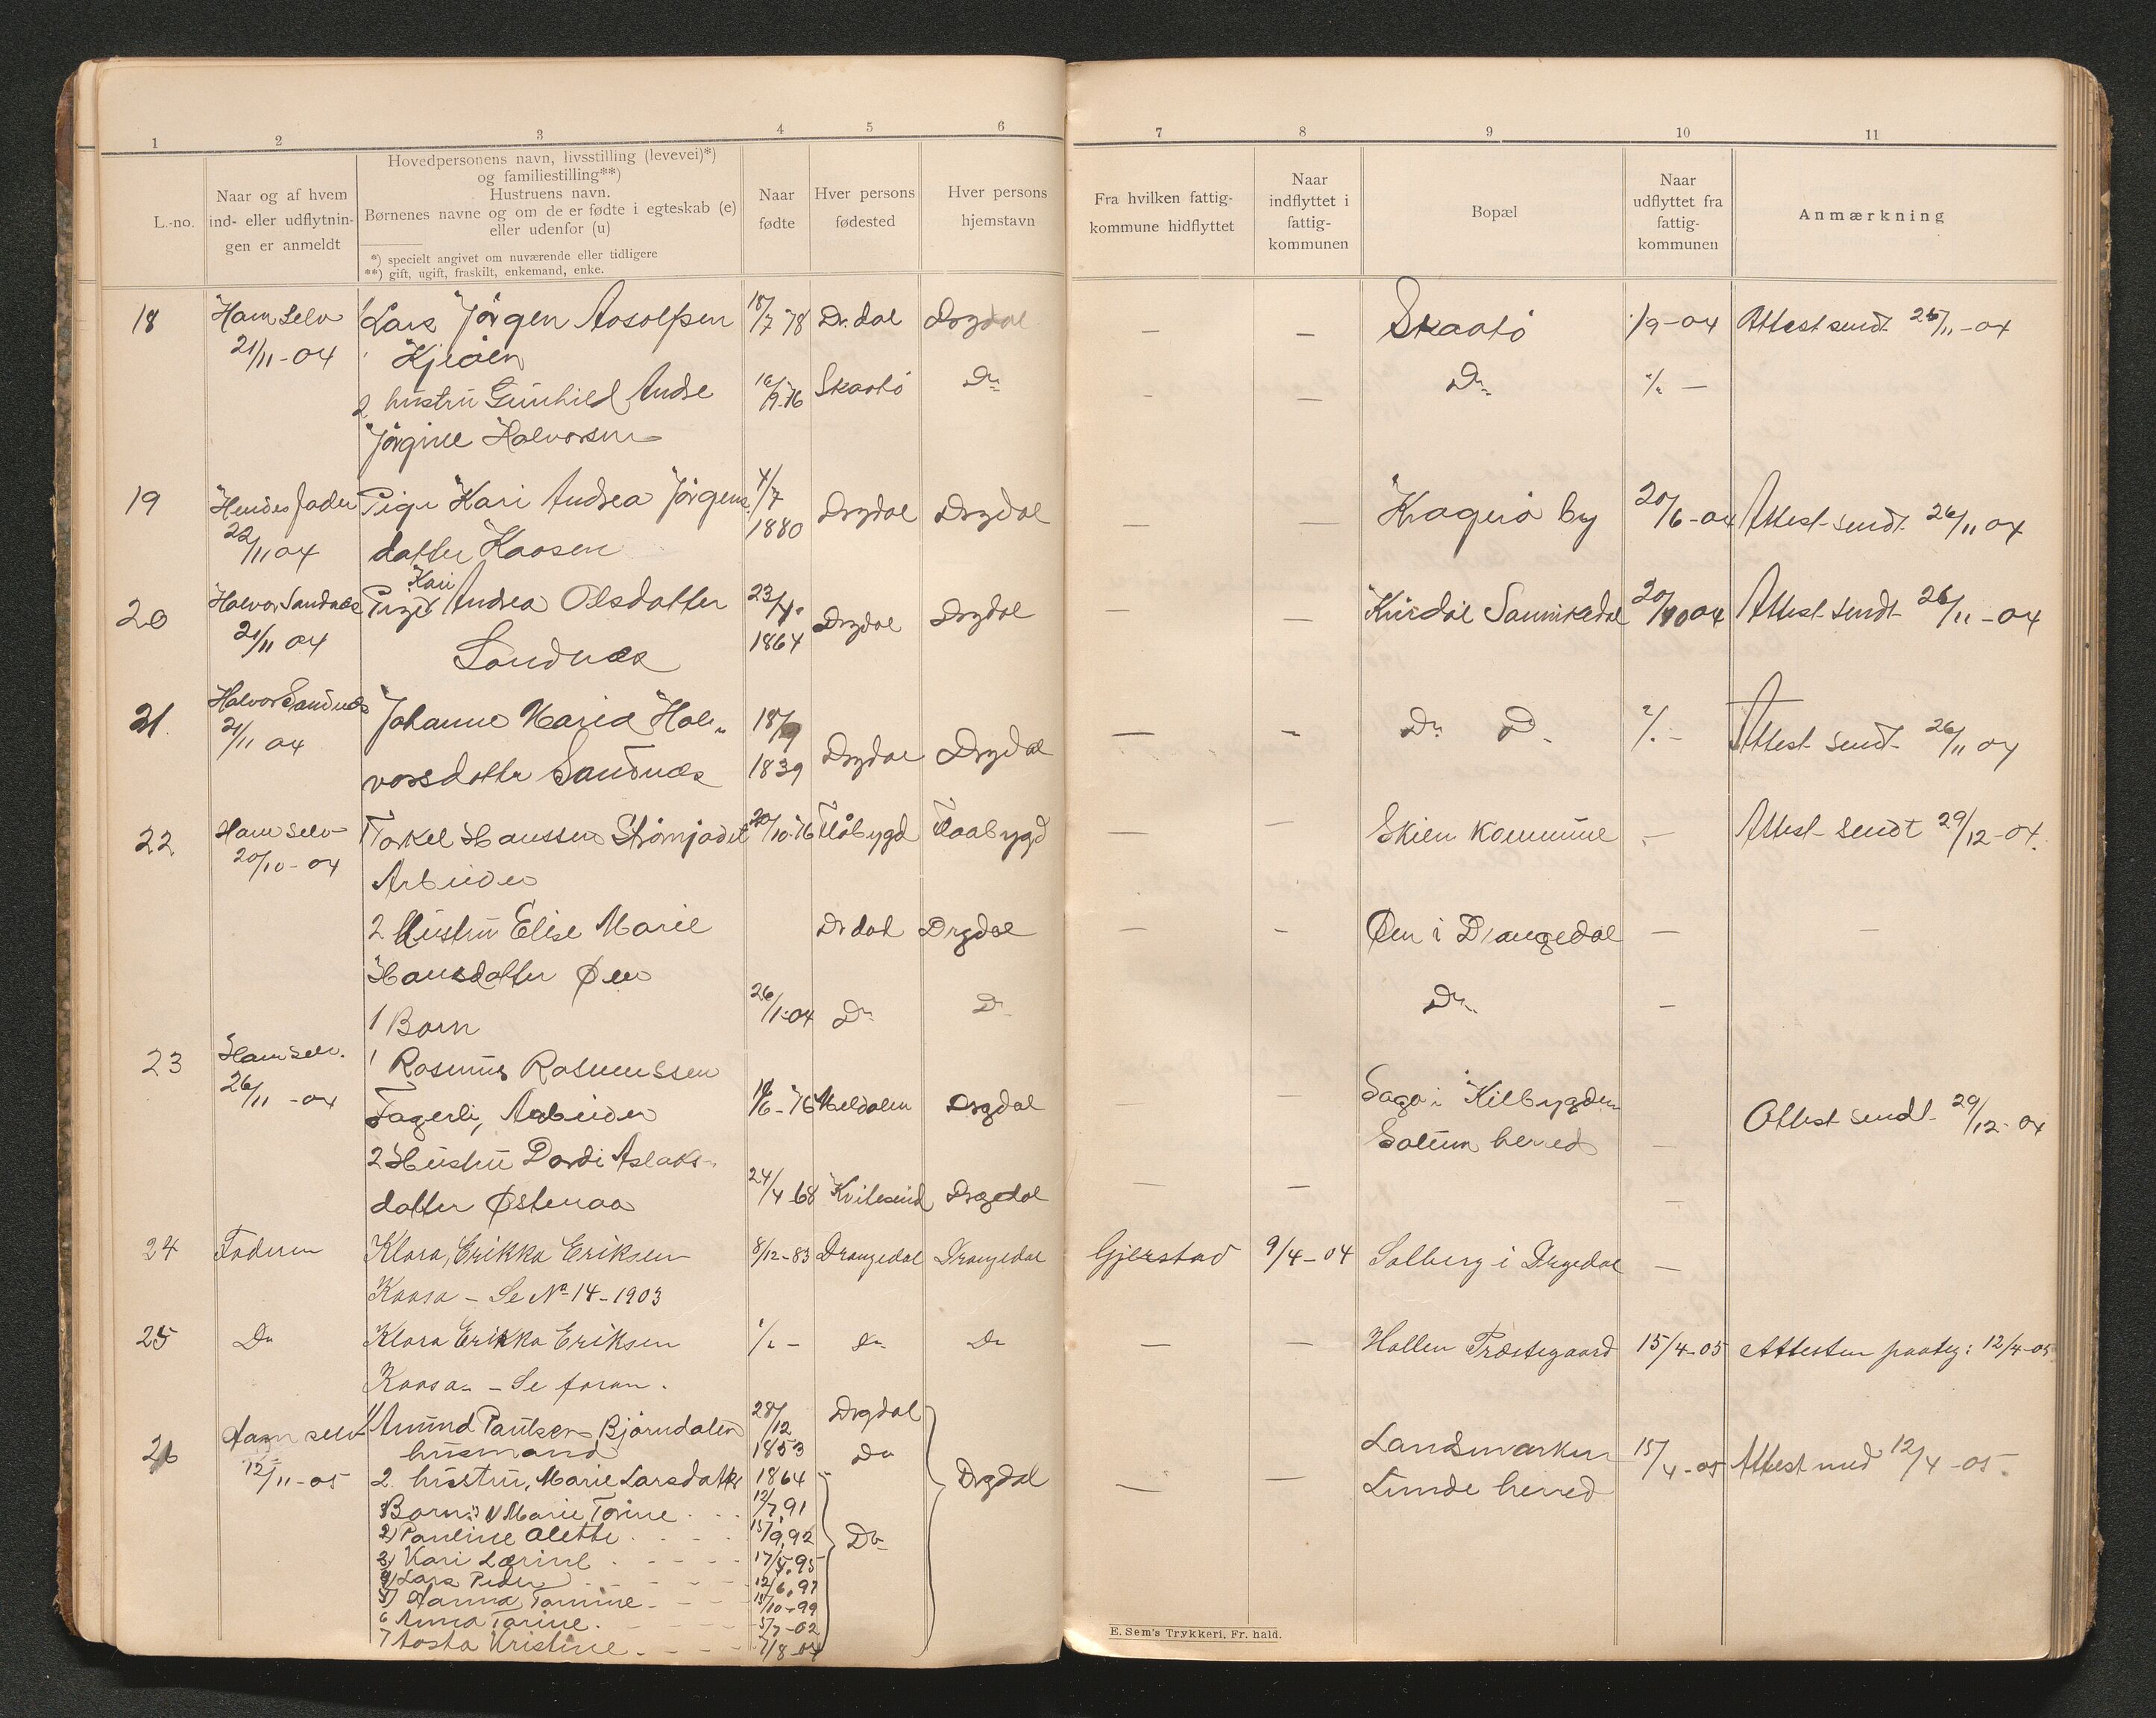 1 2 3 4 5 6 7 8 9 10 11
L.-no.
Naar og af hvem
ind- eller udflytnin-
gen er anmeldt
Hovedpersonens navn, livsstilling (levevei)*)
og familiestilling**)
Hustruens navn.
Børnenes navne og om de er fødte i egteskab (e)
eller udenfor (u)
*) specielt angivet om nuværende eller tidligere
**) gift, ugift, fraskilt, enkemand, enke.
Naar
fødte
Hver persons
fødested
Hver persons
hjemstavn
Fra hvilken fattig-
kommune hidflyttet
Naar
indflyttet i
fattig-
kommunen
Bopæl
Naar
udflyttet fra
fattig-
kommunen
Anmærkning
18 Ham selv 1 Lars Jörgen 18/7 78 Dr.dal Drgdal — — Skaatö 1/9-04 Attest sendt 26/11-04
21/11-04 Kjeåen
2 hustru Gunhild Andre 76 Skaatö Do — — Do "/" —
Jörgine Halvorsen
19 Hendes fader Pige Kari Andrea Jörgens 4/7 Drgdal Drgdal — — Kragerö by 20/6-04 Attest sendt 26/11 04
22/11 04 datter Kaasen 1880
20 Halvor Sandnæs Pige Kari Andrea Olsdatter 23/ Drgdal Drgdal — — Sannikedal 20/10 04 Attest sendt 26/11-04
21/11 04 Sandnæs 1864
21 Halvor Sandnæs Johanne Maria Hal- 18/9 Drgdal Drgdal — — Do D "/" - Attest sendt 26/11 04
21/11 04 vorsdatter Sandnæs 1839
22 Ham selv Torkel Hanssen Strömjordet 20/10-76 Flåbygd Flaabygd — — Skien kommune — Attest sendt 29/12-04.
20/10-04 Arbeider
2 Hustru Elise Marie Dr dal Drgdal — — Øen i Drangedal — —
Hansdatter Øen
1 Barn 26/1-04 Do D Do —
23 Ham selv. 1 Rasmus Rasmussen
26/11-04 Fagerli, Arbeider 76 Meldalen Drgdal — — Saga i Kilbygden
Solum herred — Attest sendt 29/12-04
2 Hustru Dordi Aslaks-
datter Østenaa 24/4 68 Kviteseid Drgedal — — —
24 Faderen Klara, Erikka Eriksen 8/12-83 Drangedal Drangedal Gjerstad 9/4-04 Solberg i Drgedal —
Kaasa — Se No 14-1903
25 Do Klara Erikka Eriksen "/" - do Do — — Hollen Præstegaard 15/4-05 Attesten paateg: 12/4-05
Kaasa - Se foran.
26 Ham selv 1) Amund Paulsen Bjørndalen 28/12 Drgdal
12/11-05 husmand 1853 Do
2. hustru, Marie Larsdatter 1864 Do Drgdal — — Landsmarken 15/4-05 Attest med 12/4-05.
Lunde herred
Barn: 1) Marie Torine 12/7.91
2) Pauline Olette 15/9.92
3) Kari Lærine 17/5.95
4) Lars Peder 12/6.97
5) Hanna Tomine 15/10-99
6 Anna Torine. 5/7-02
7 Aosta Kristine 7/8-04
E. Sem's Trykkeri, Fr. hald.